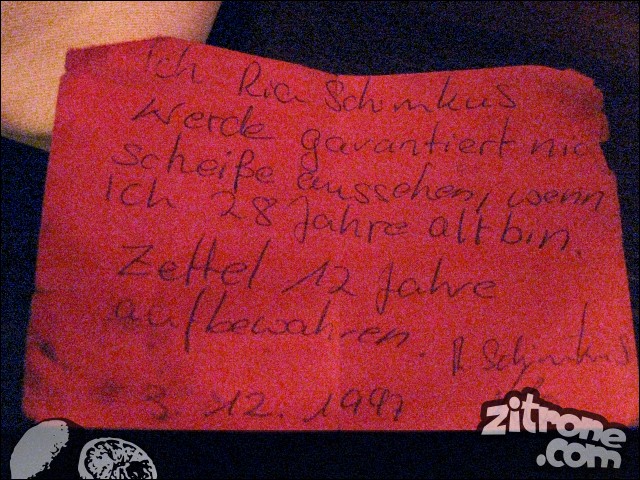 Ich Ria Schimkus
werde garantiert nie
scheiße aussehen, wenn
Ich 28 Jahre alt bin.
Zettel 12 Jahre
aufbewahren.
R. Schimkus
3.12.1997
zitrone
.com